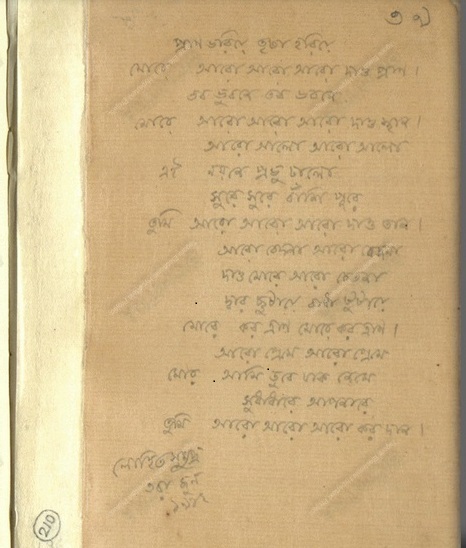 ৩৭
প্রাণ ভরিয়ে তৃষা হরিয়ে
মোরে আরো আরো আরো দাও প্রাণ।
তব ভুবনে তব ভবনে
মোরে আরো আরো আরো দাও স্থান।
আরো আলো আরো আলো
এই নয়নে প্রভু ঢালো
সুরে সুরে বাঁশি পূরে
তুমি আরো আরো আরো দাও তান।
আরো বেদনা আরো বেদনা
দাও মোরে আরো চেতনা
দ্বার ছুটায়ে বাধা টুটায়ে
মোরে কর ত্রাণ মোরে কর ত্রাণ।
আরো প্রেমে আরো প্রেমে
মোর আমি ডুবে যাক নেমে
সুধাধারে আপনারে
তুমি আরো আরো আরো কর দান।
লোহিত সমুদ্র
৩রা জুন
210